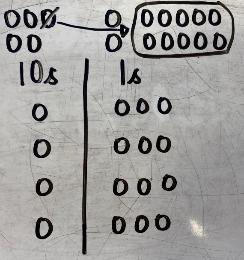 000 0 00000
00 0 00000
10s 1s
0 000
0 000
0 000
0 000